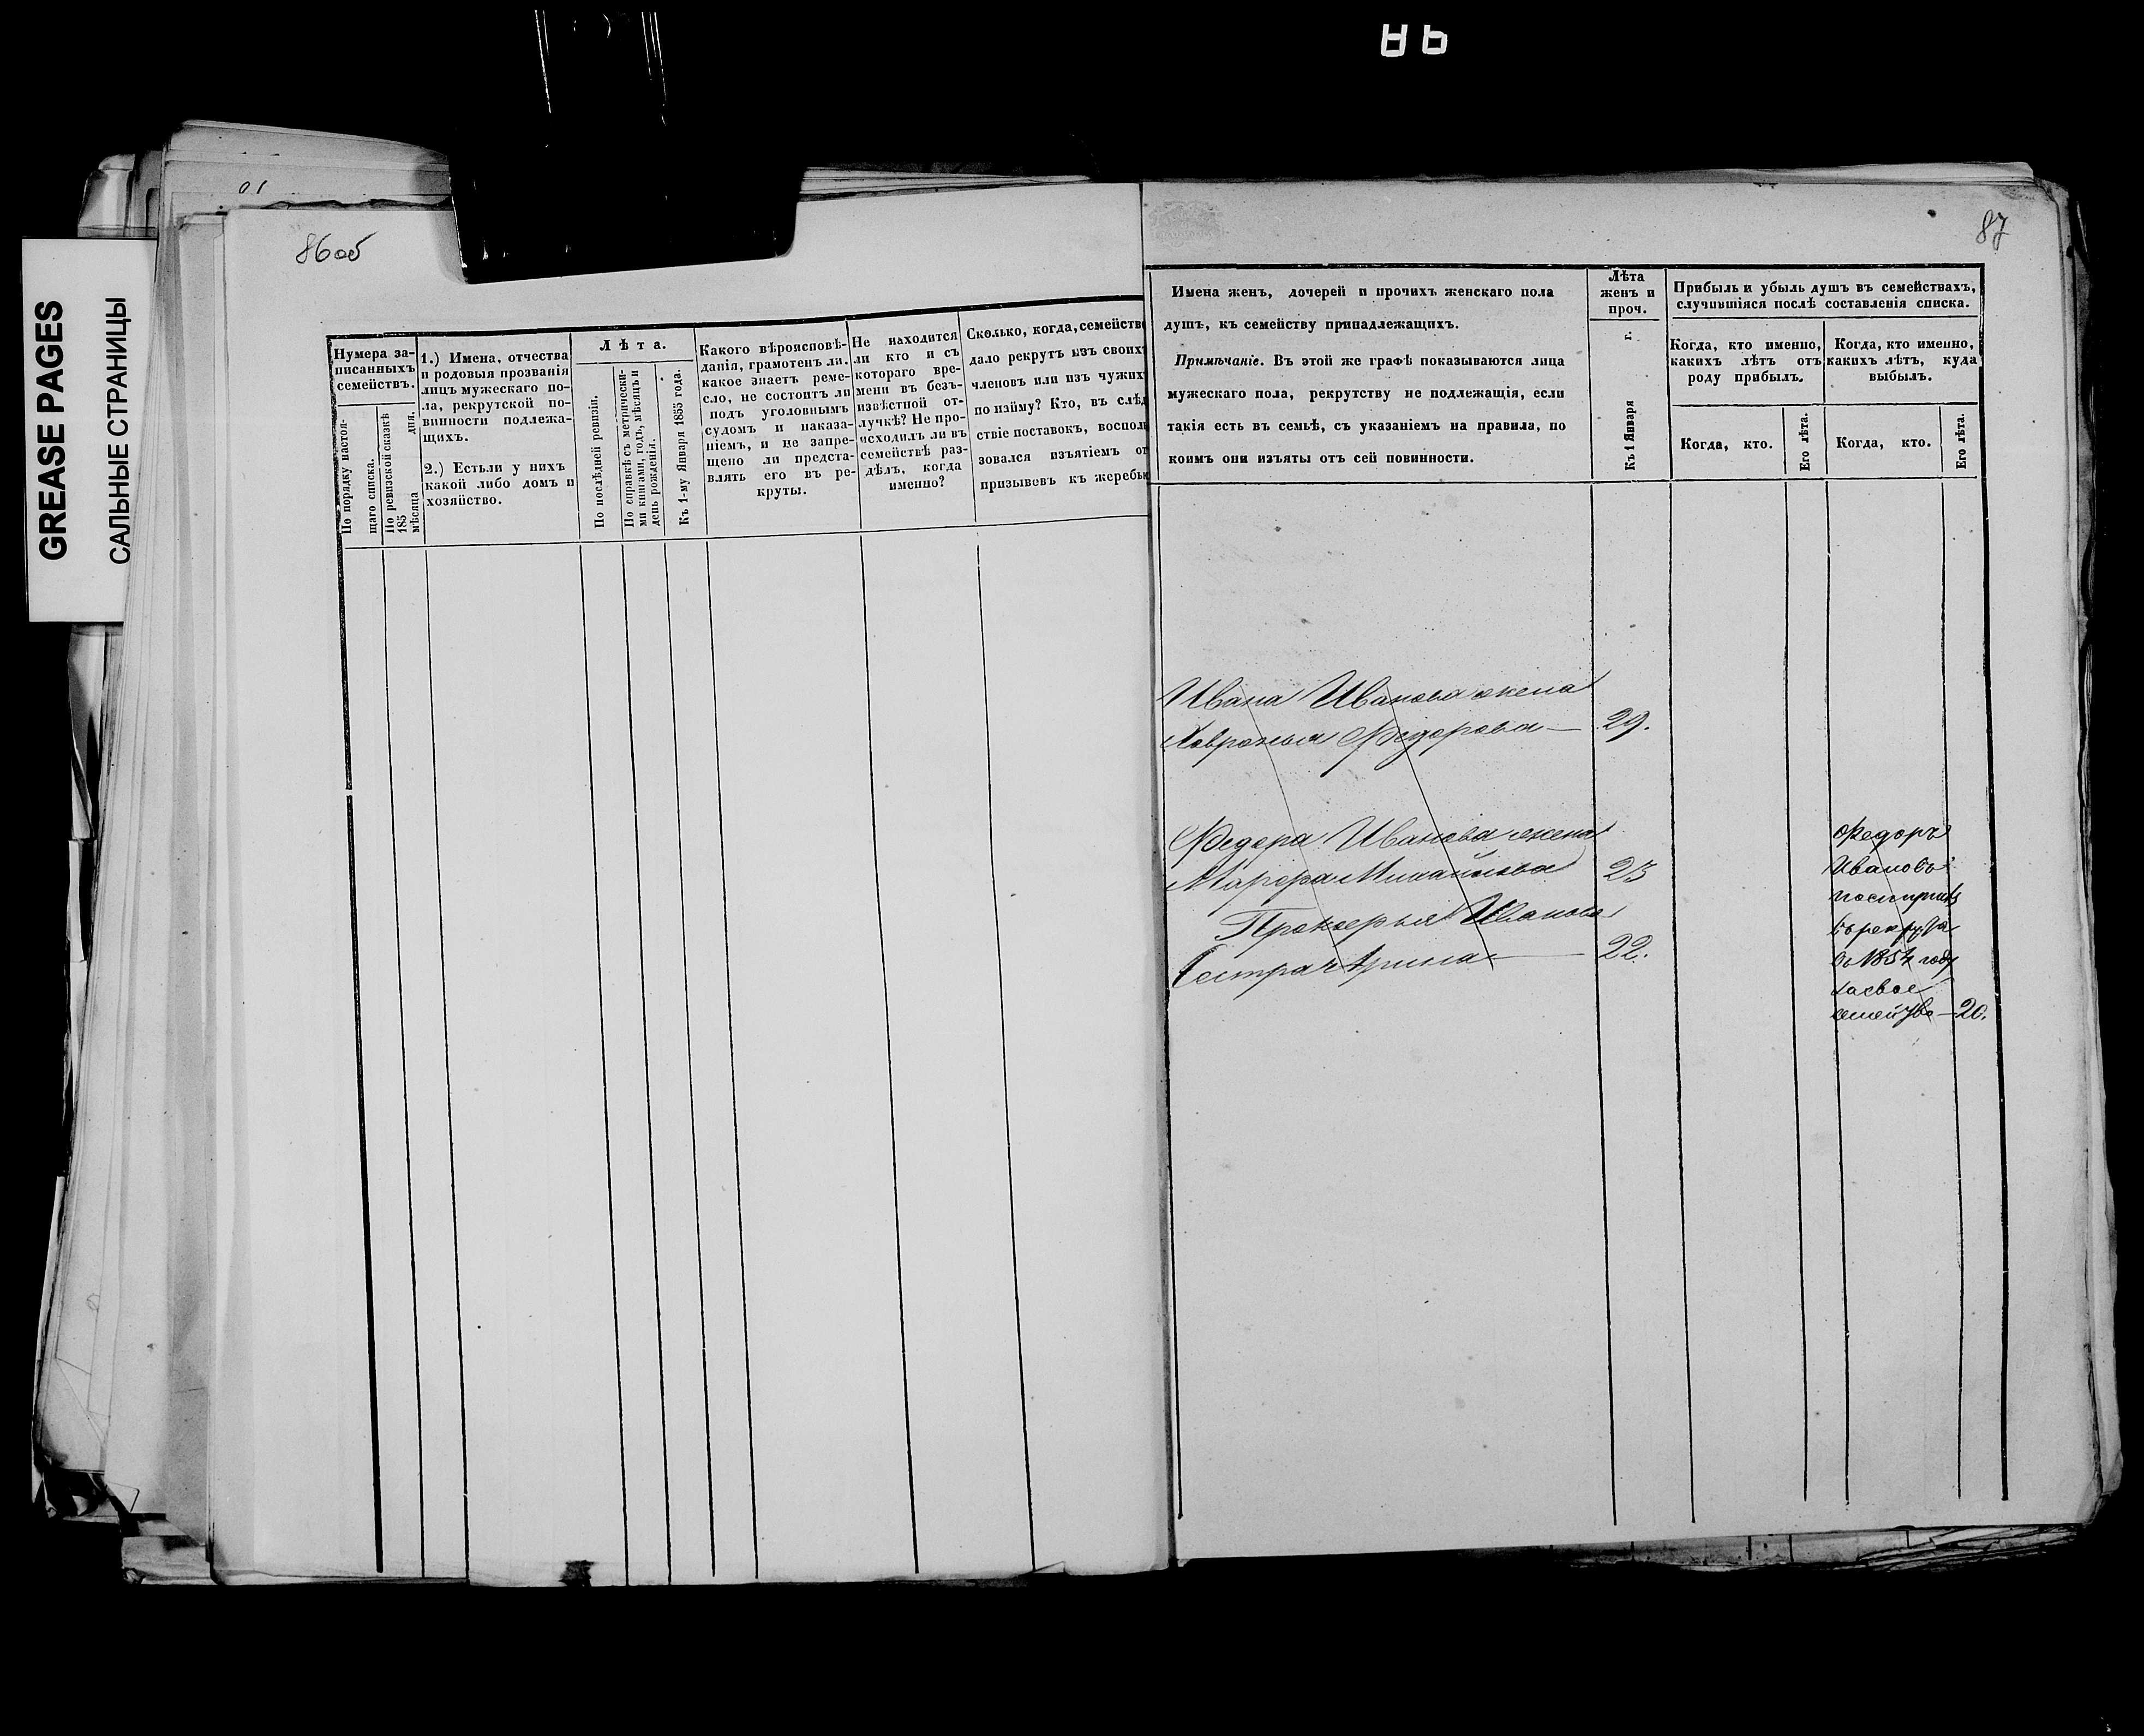 ЯЬ
GREASE PAGES
САЛЬНЫЕ СТРАНИЦЫ
86об
Нумера за-
писанныхъ
семействъ.
По порядку настоя-
щаго списка.
По ревизской сказкѣ
185
мѣсяца дня.
1.) Имена, отчества
и родовыя прозванія
лицъ мужескаго по-
ла, рекрутской по-
винности подлежа-
щихъ.
2.) Естьли у нихъ
какой либо домъ и
хозяйство.
Лѣта.
По послѣдней ревизіи.
По справкѣ съ метрически-
ми книгами, годъ, мѣсяцъ и
день рожденія.
Къ 1-му Января 1855 года.
Какого вѣроисповѣ-
данія, грамотенъ ли.
какое знаетъ реме-
сло, не состоитъ ли
подъ уголовнымъ
судомъ и наказа-
ніемъ, и не запре-
щено ли предста-
влять его въ ре-
круты.
Не находится
ли кто и съ
котораго вре-
мени въ безъ-
извѣстной от-
лучкѣ? Не про-
исходилъ ли въ
семействѣ раз-
дѣлъ, когда
именно?
Сколько, когда, семейств
дало рекрутъ изъ своих
членовъ или изъ чужих
по найму? Кто, въ слѣд
ствіе поставокъ, воспол
зовался изъятіемъ от
призывовъ къ жеребь
87
Имена женъ, дочерей и прочихъ женскаго пола
душъ, къ семейству принадлежащихъ.
Примѣчаніе. Въ этой же графѣ показываются лица
мужескаго пола, рекрутству не подлежащія, если
такія есть въ семьѣ, съ указаніемъ на правила, по
коимъ они изъяты отъ сей повинности.
Лѣта
женъ и
проч.
Къ 1 Января г.
Прибыль и убыль душъ въ семействахъ,
случившіяся послѣ составленія списка.
Когда, кто именно,
какихъ лѣтъ отъ
роду прибылъ.
Когда, кто именно,
какихъ лѣтъ, куда
выбылъ.
Когда, кто.
Его лѣта.
Когда, кто.
Его лѣта.
Ивана Иванова жена
Хавронья Федорова — 29.
Федора Иванова жена
Марфа Михайлова 23
Прокофья Иванова
Сестра Арина — 22.
Федоръ
Ивановъ
поступилъ
въ рекрута
въ 1854 году
за свое
семейство — 20.